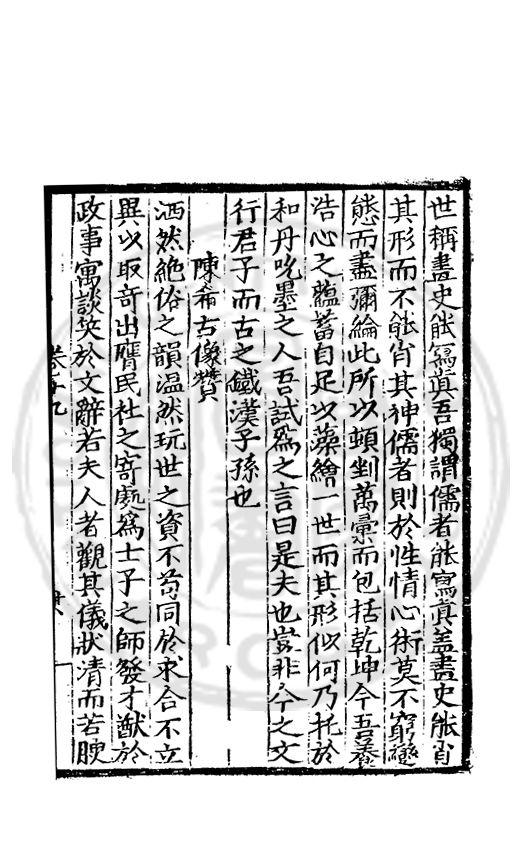 世稱畫史能寫真吾獨謂儒者能寫真盖畫史能肖
其形而不能肖其神儒者則於性情心術莫不窮變
態而盡彌綸此所以頓剉萬彚而包括乾坤今吾養
浩心之蘊蓄自足以藻繪一世而其形似何乃托於
和丹吮墨之人吾試為之言曰是夫也豈非今之文
行君子而古之鐵漢子孫也
陳希古像贊
洒然絶俗之韻温然玩世之資不苟同於求合不立
異以取奇出膺民社之寄處為士子之師發才猷於
政事寓談笑於文辭若夫人者觀其儀狀凊而若腴
卷十九